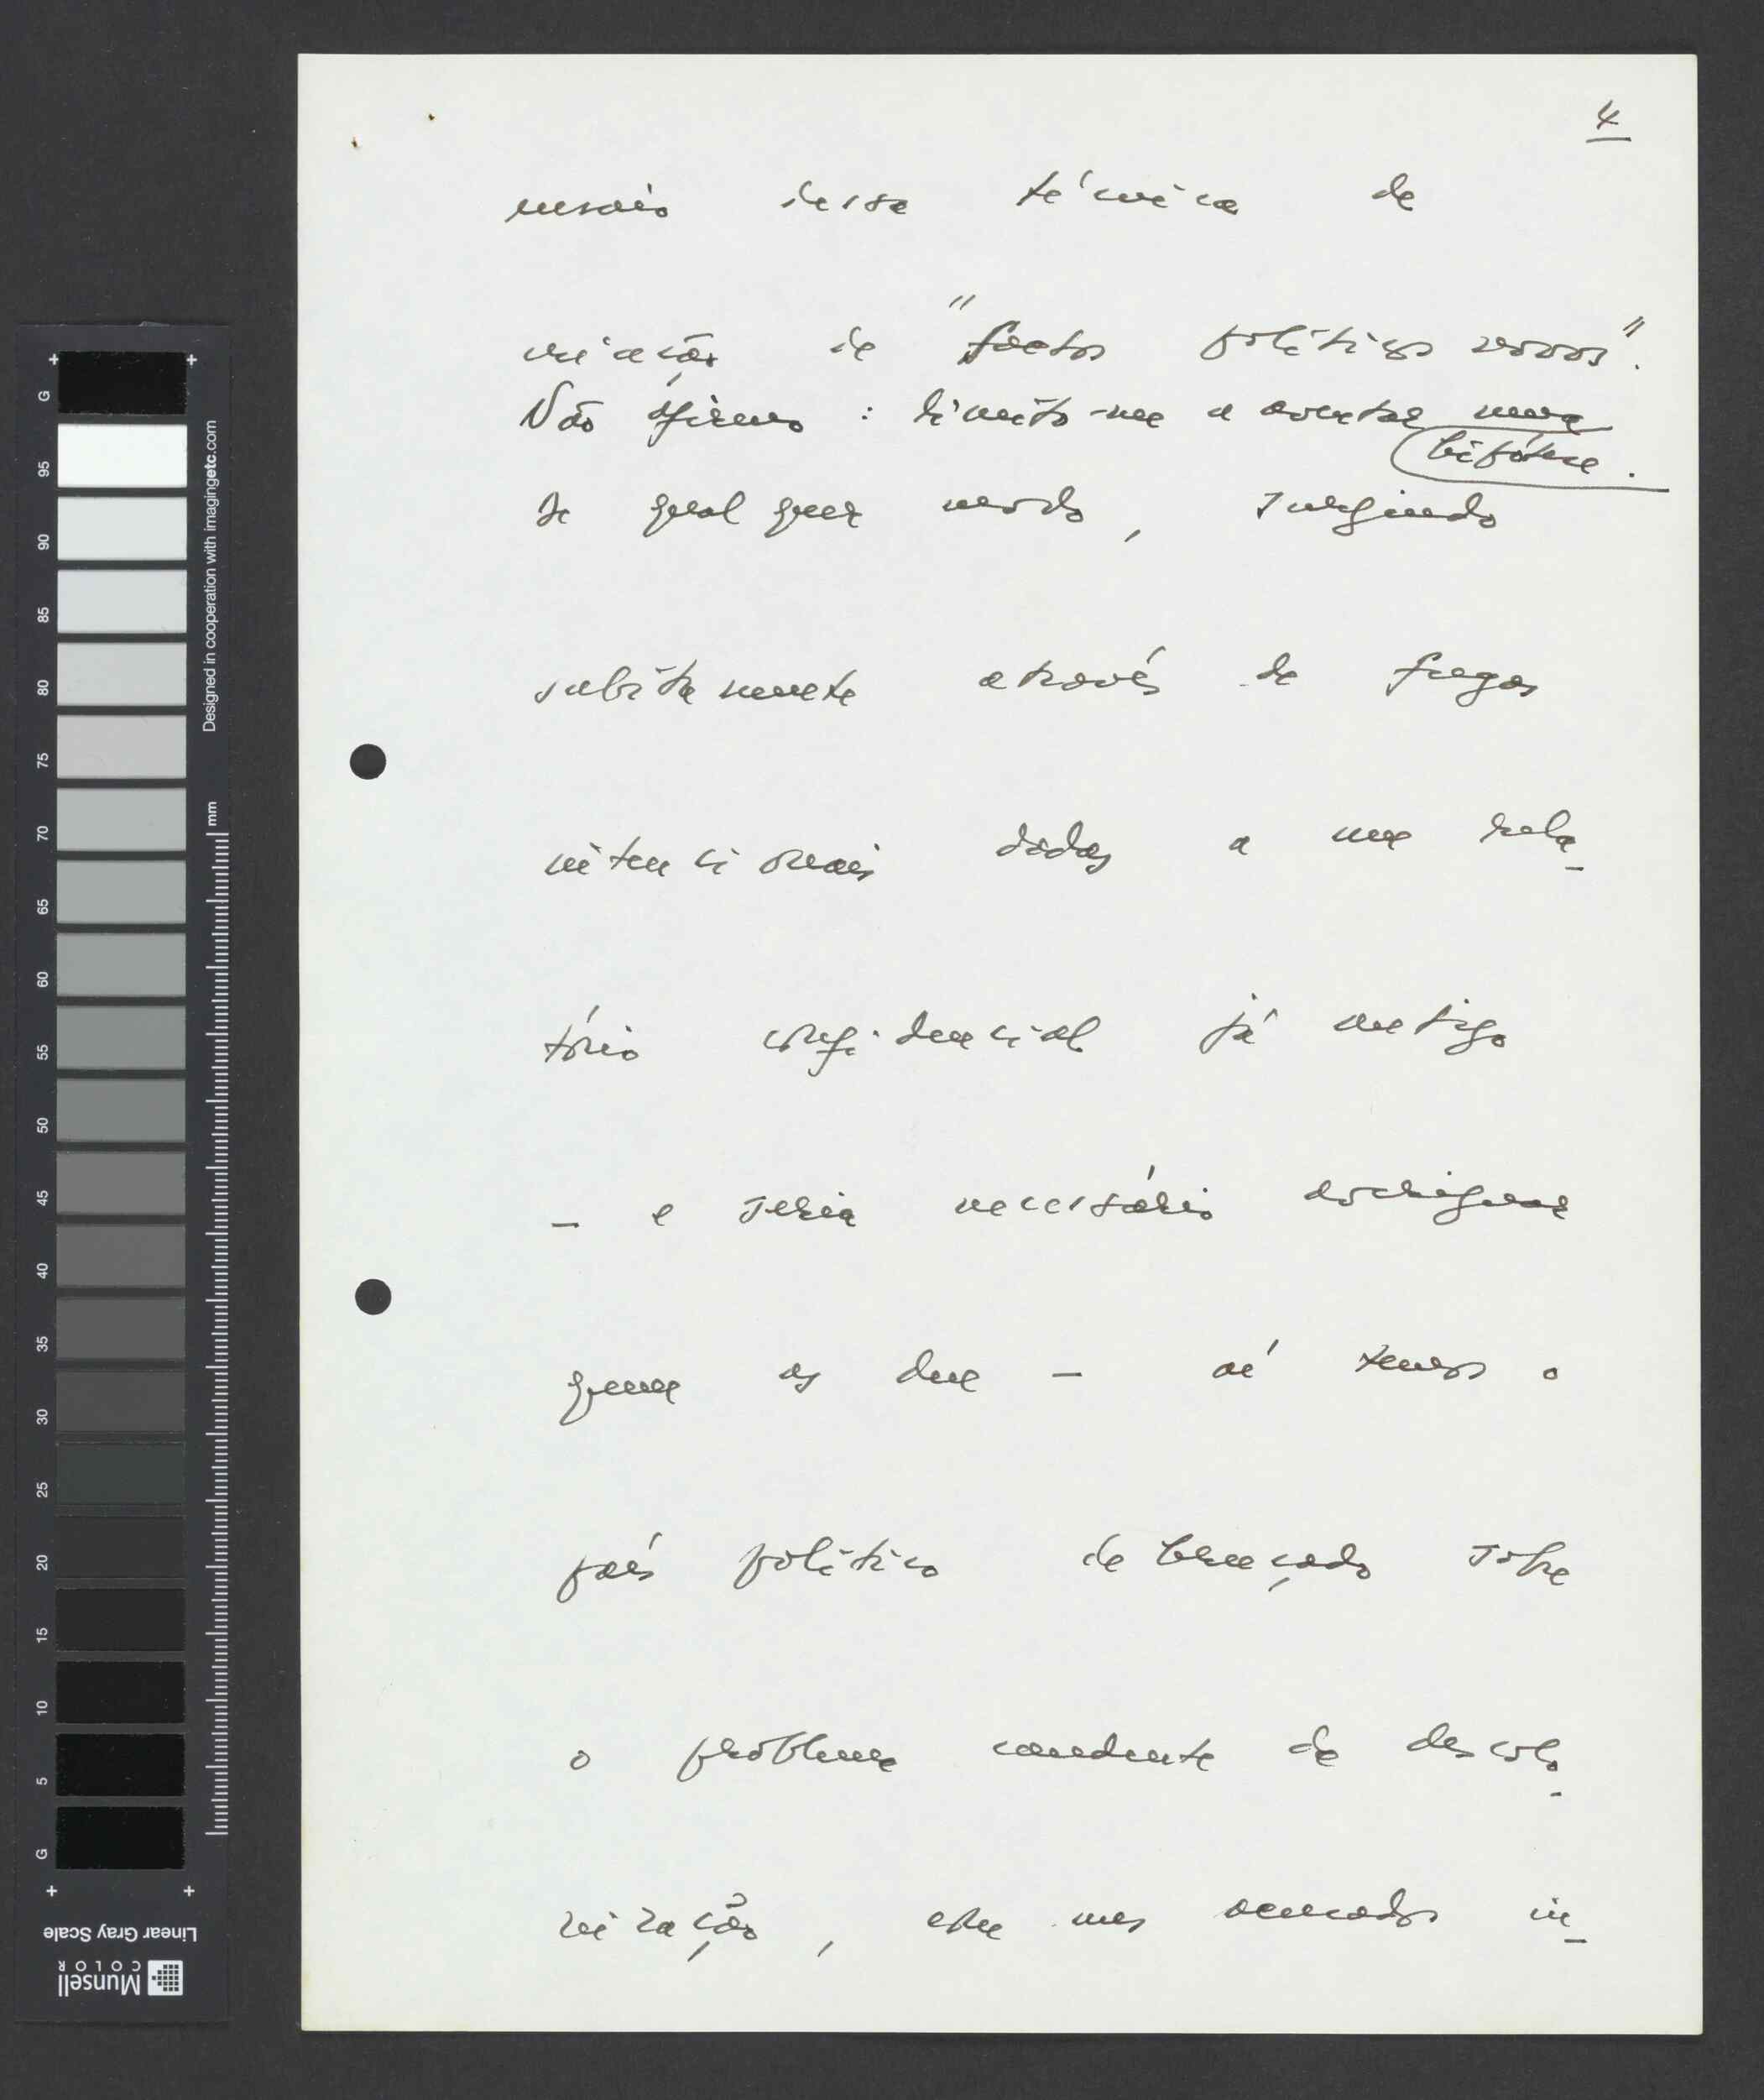 4
dessa técnica de
criação de "factos políticos novos".
Não afirmo : limito-me a aventar uma
hipótese.
De qualquer modo, surgindo
subitamente através de fugas
intencionais dadas a um rela-
tório confidencial já antigo
- e seria necessário averiguar
quem as deu - aí temos o
país político debruçado sobre
o problema candente da descolo-
nização, com uns acusados in-
G
95
90
85
80
75
70
65
60
55
50
45
40
35
30
25
20
15
10
5
G
mm
Designed in cooperation with imagingetc.com
Linear Gray Scale
Munsell
COLOR